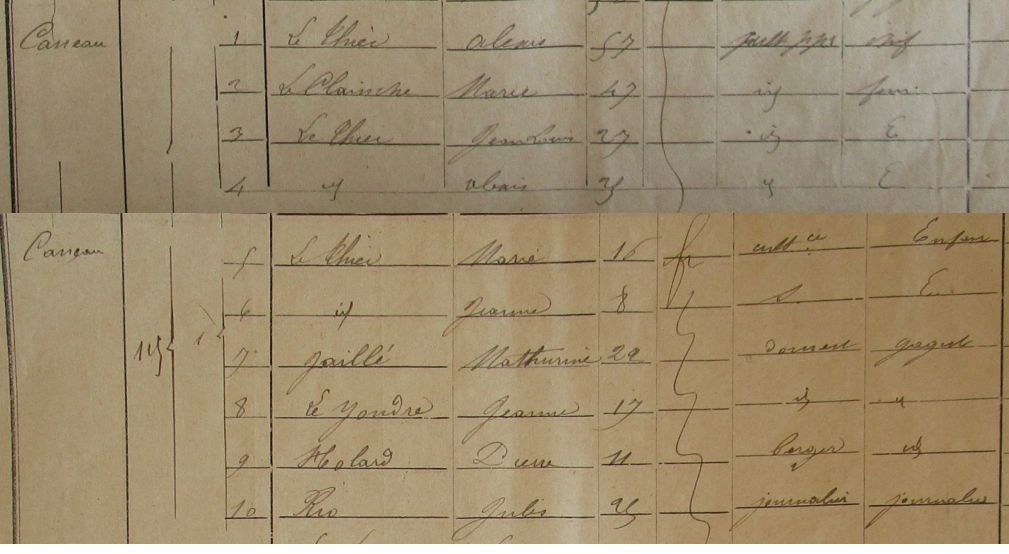 Canneau 1 Le Thiec alexis 57 cult ppe chef
2 Le Clainche Marie 47 id fem.
3 Le Thiec Jean Louis 27 id E
4 id alexis 25 id E
Canneau 5 Le Thiec Marie 16 fr cult ce Enfant
6 id Jeanne 8 En
7 Jaillé Mathurine 22 domest gages
8 Le Yondre Jeanne 17 id id
9 Molard Pierre 11 berger id
10 Rio Jules 25 journalier journalier